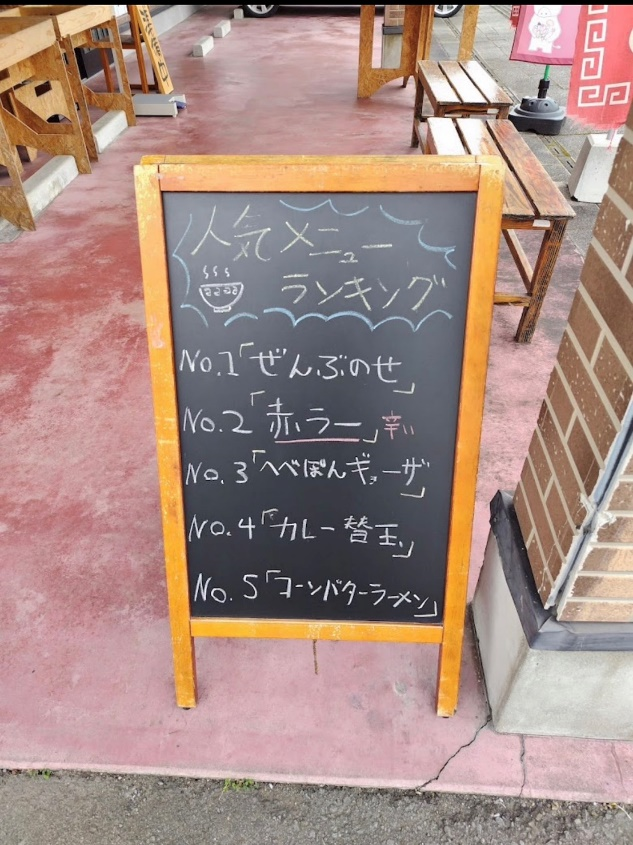 人気メニュー
ランキング
No.1「ぜんぶのせ」
No.2「赤ラー」辛い
No.3「へべぽんギョーザ」
No.4「カレー替玉」
No.5「コーンバターラーメン」